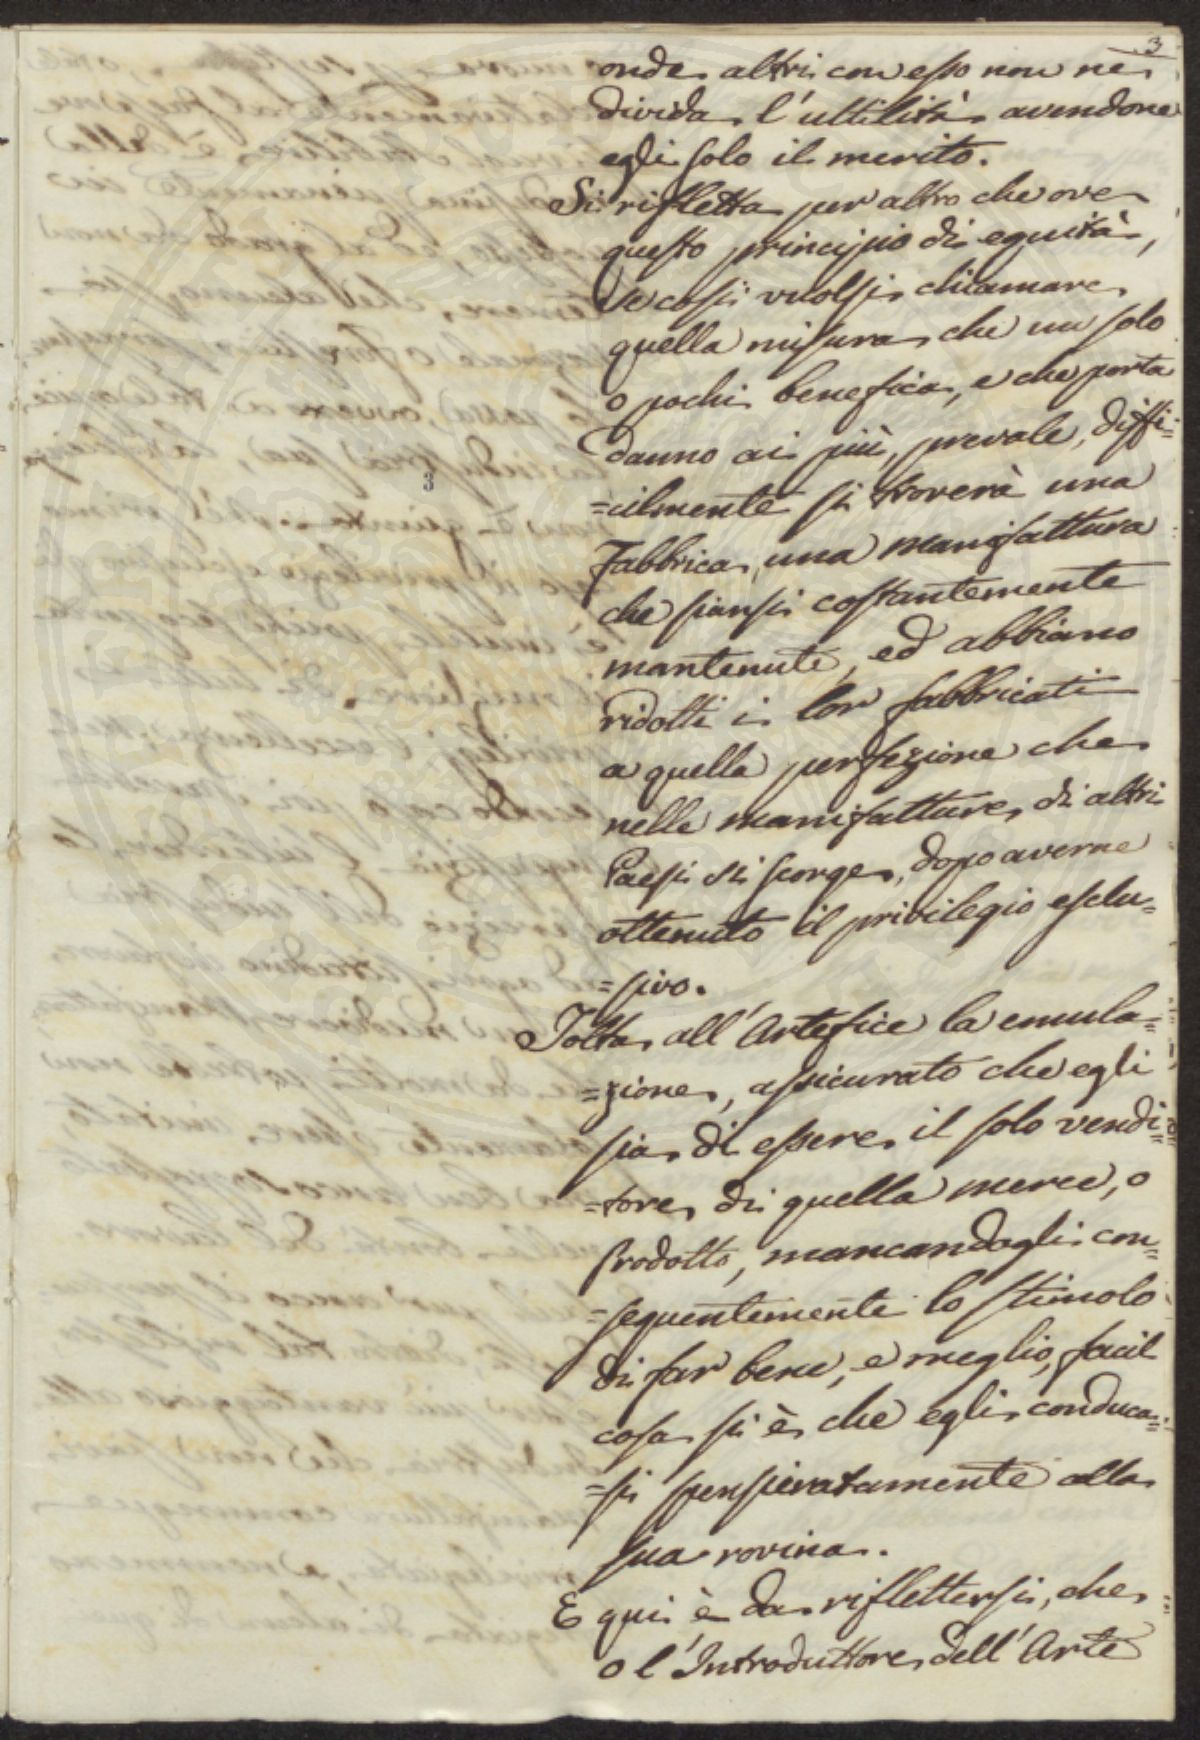 3
onde altri con esso non nè
divida l'uttilità avendone
egli solo il merito.
Si rifletta per altro che ove
questo principio di equità,
se così vuolsi chiamare
quella misura che un solo
o pochi benefica, e che porta
danno ai più, prevale, diffi=
=cilmente si troverà una
Fabbrica, una manifattura
che siansi costantemente
mantenute, ed abbiano
ridotti i lor fabbricati
a quella perfezione che
nelle manifatture di altri
Paesi si scorge, dopo averne
ottenuto il privilegio esclu=
=sivo.
Tolta all'Artefice la emula=
=zione, assicurato che egli
sia di essere il solo vendi=
=tore di quella merce, o
Prodotto, mancandogli con=
=seguentemente lo stimolo
di far bene, e meglio, facil
cosa si è che egli conduca=
=si spensieratamente alla
sua rovina.
E qui è da riflettersi, che
o l'Introduttore dell'Arte
3